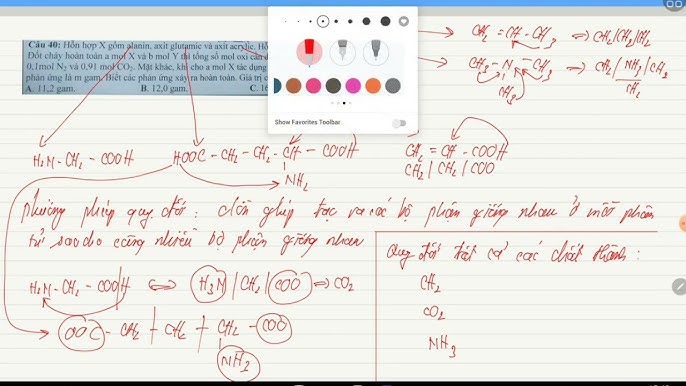 Câu 40: Hỗn hợp X gồm alanin, axit glutamic và axit acrylic. Hỗ
Đốt cháy hoàn toàn a mol X và b mol Y thì tổng số mol oxi cần d
0,1mol N₂ và 0,91 mol CO₂. Mặt khác, khi cho a mol X tác dụng
phản ứng là m gam. Biết các phản ứng xảy ra hoàn toàn. Giá trị c
A. 11,2 gam. B. 12,0 gam. C. 16
Show Favorites Toolbar
CH₂ = CH - CH₃ ⇒ CH₂/CH₂/CH₂
CH₃ - N - CH₃ ⇒ CH₂/NH₃/CH₂
CH₃ CH₂
H₂N - CH₂ - COOH HOOC - CH₂ - CH₂ - CH - COOH
NH₂
CH₂ = CH - COOH
CH₂ / CH₂ / COO
Phương pháp quy đổi: dồn ghép tạo ra các bộ phận giống nhau ở mỗi phân
tử sao cho càng nhiều bộ phận giống nhau
H₂N - CH₂ - COOH ⇔ H₃N / CH₂ / COO ⇒ CO₂
OOC - CH₂ + CH₂ + CH₂ - COO
NH₃
Quy đổi tất cả các chất thành:
CH₂
CO₂
NH₃